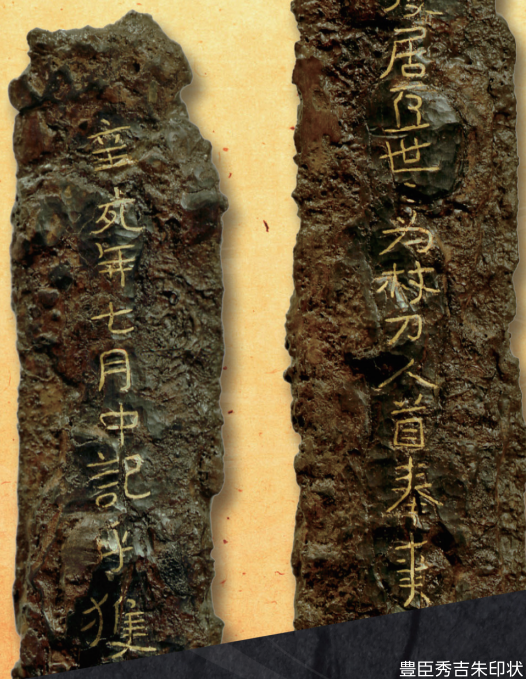 辛亥年七月中記乎獲
居臣世々為杖刀人首奉事
豊臣秀吉朱印状